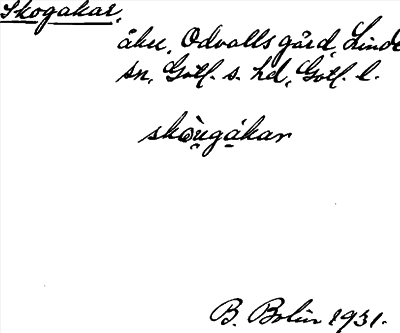 Skogakar,
åker, Odvalls gård, Linde
sn, Gotl. s. hd, Gotl. l.
skòu̯gákar
B. Bolin 1931.